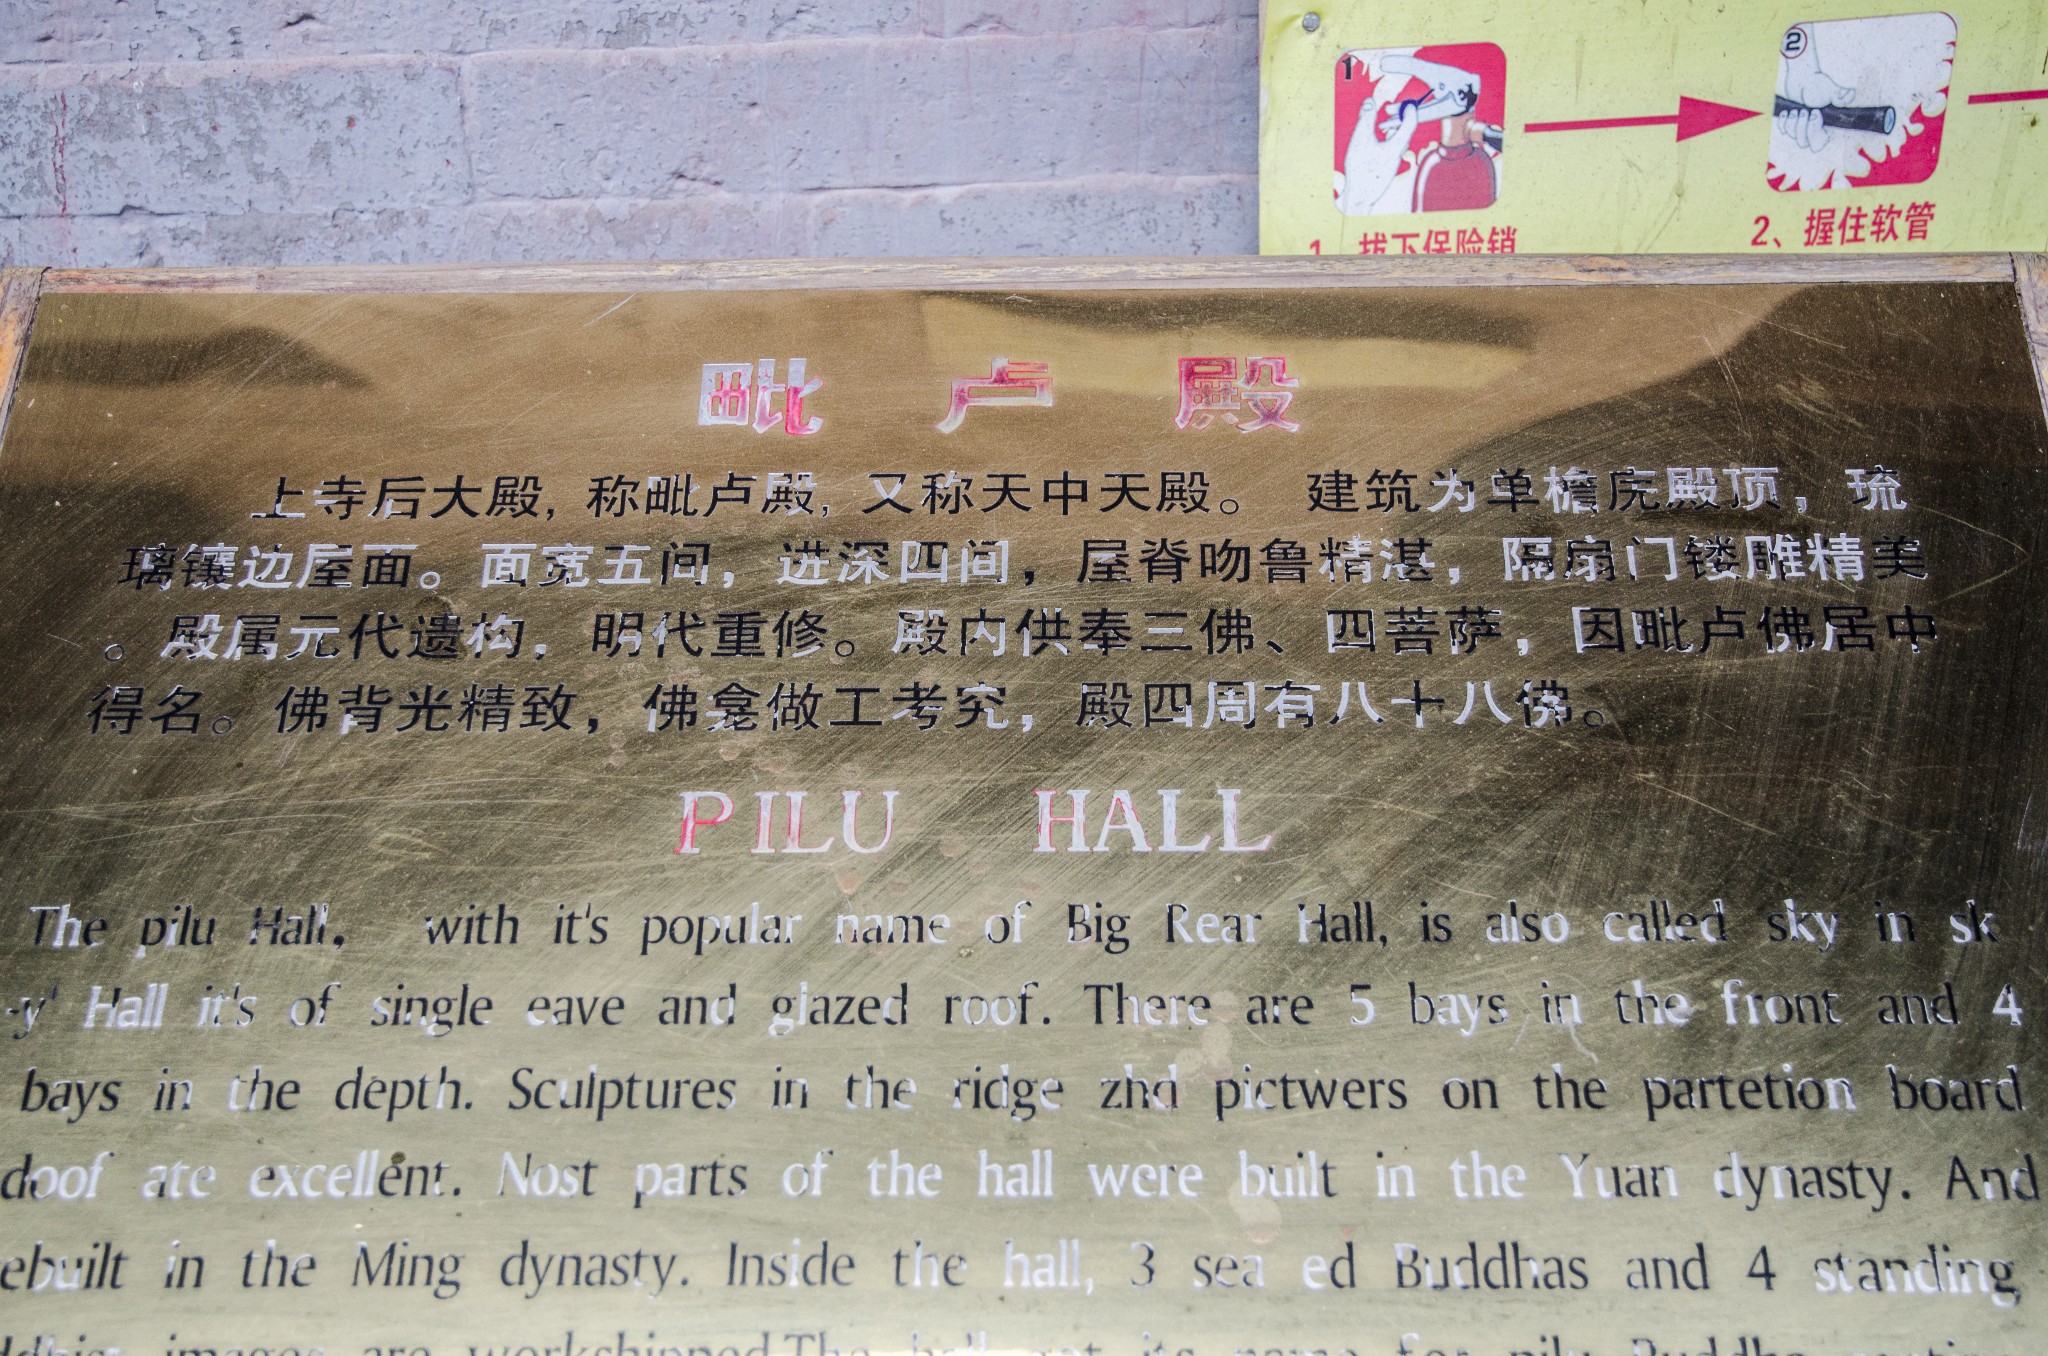 1
2
1、拔下保险销
2、握住软管
毗卢殿
上寺后大殿, 称毗卢殿, 又称天中天殿。 建筑为单檐庑殿顶，琉
璃镶边屋面。面宽五间，进深四间，屋脊吻鲁精湛，隔扇门镂雕精美
。殿属元代遗构，明代重修。殿内供奉三佛、四菩萨，因毗卢佛居中
得名。佛背光精致，佛龛做工考究，殿四周有八十八佛。
PILU HALL
The pilu Hall, with it's popular name of Big Rear Hall, is also called sky in sk
-y' Hall it's of single eave and glazed roof. There are 5 bays in the front and 4
bays in the depth. Sculptures in the ridge zhd pictwers on the partetion board
doof ate excellent. Nost parts of the hall were built in the Yuan dynasty. And
ebuilt in the Ming dynasty. Inside the hall, 3 sea ed Buddhas and 4 standing
images are workshipped.The hall got its name for pilu Buddha